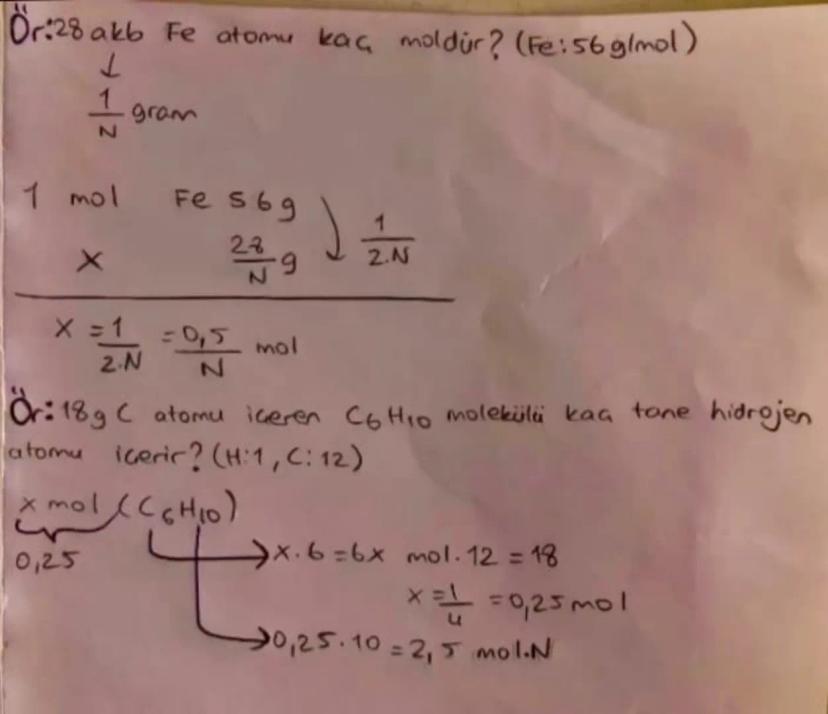 Ör: 28 akb Fe atomu kaç moldür? (Fe: 56 g/mol)
↓
1/N gram
1 mol Fe 56g
x 28/N g 1/2.N
x = 1/2.N = 0,5/N mol
Ör: 18g C atomu içeren C6H10 molekülü kaç tane hidrojen
atomu içerir? (H:1, C:12)
x mol (C6H10)
0,25 → x.6 = 6x mol.12 = 18
x = 1/4 = 0,25 mol
→ 0,25.10 = 2,5 mol.N